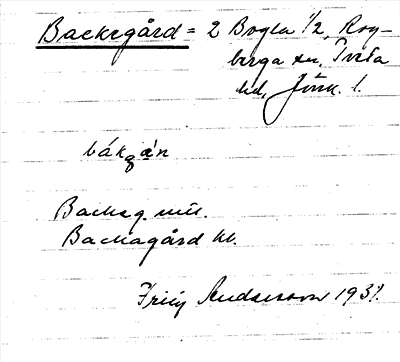 Backegård = 2 Bogla 1/2, Rog-
berga sn, Tveta
hd, Jönk. l.
Backeg. mtl.
Backagård hl.
Andersson 1931.